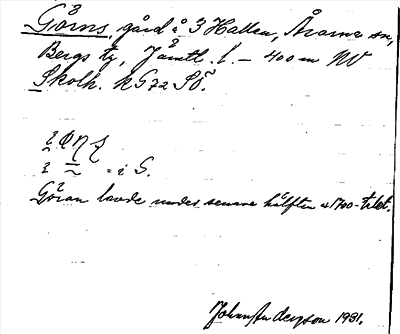 Görns, gård å Hallen, Åvarne sn,
Bergs tg, Jämtl. l. – 400 m NV
Skolh. kG72 SÖ.
i S.
Göran levde under senare hälften a 1700-talet.
Johan Anderson 1931.